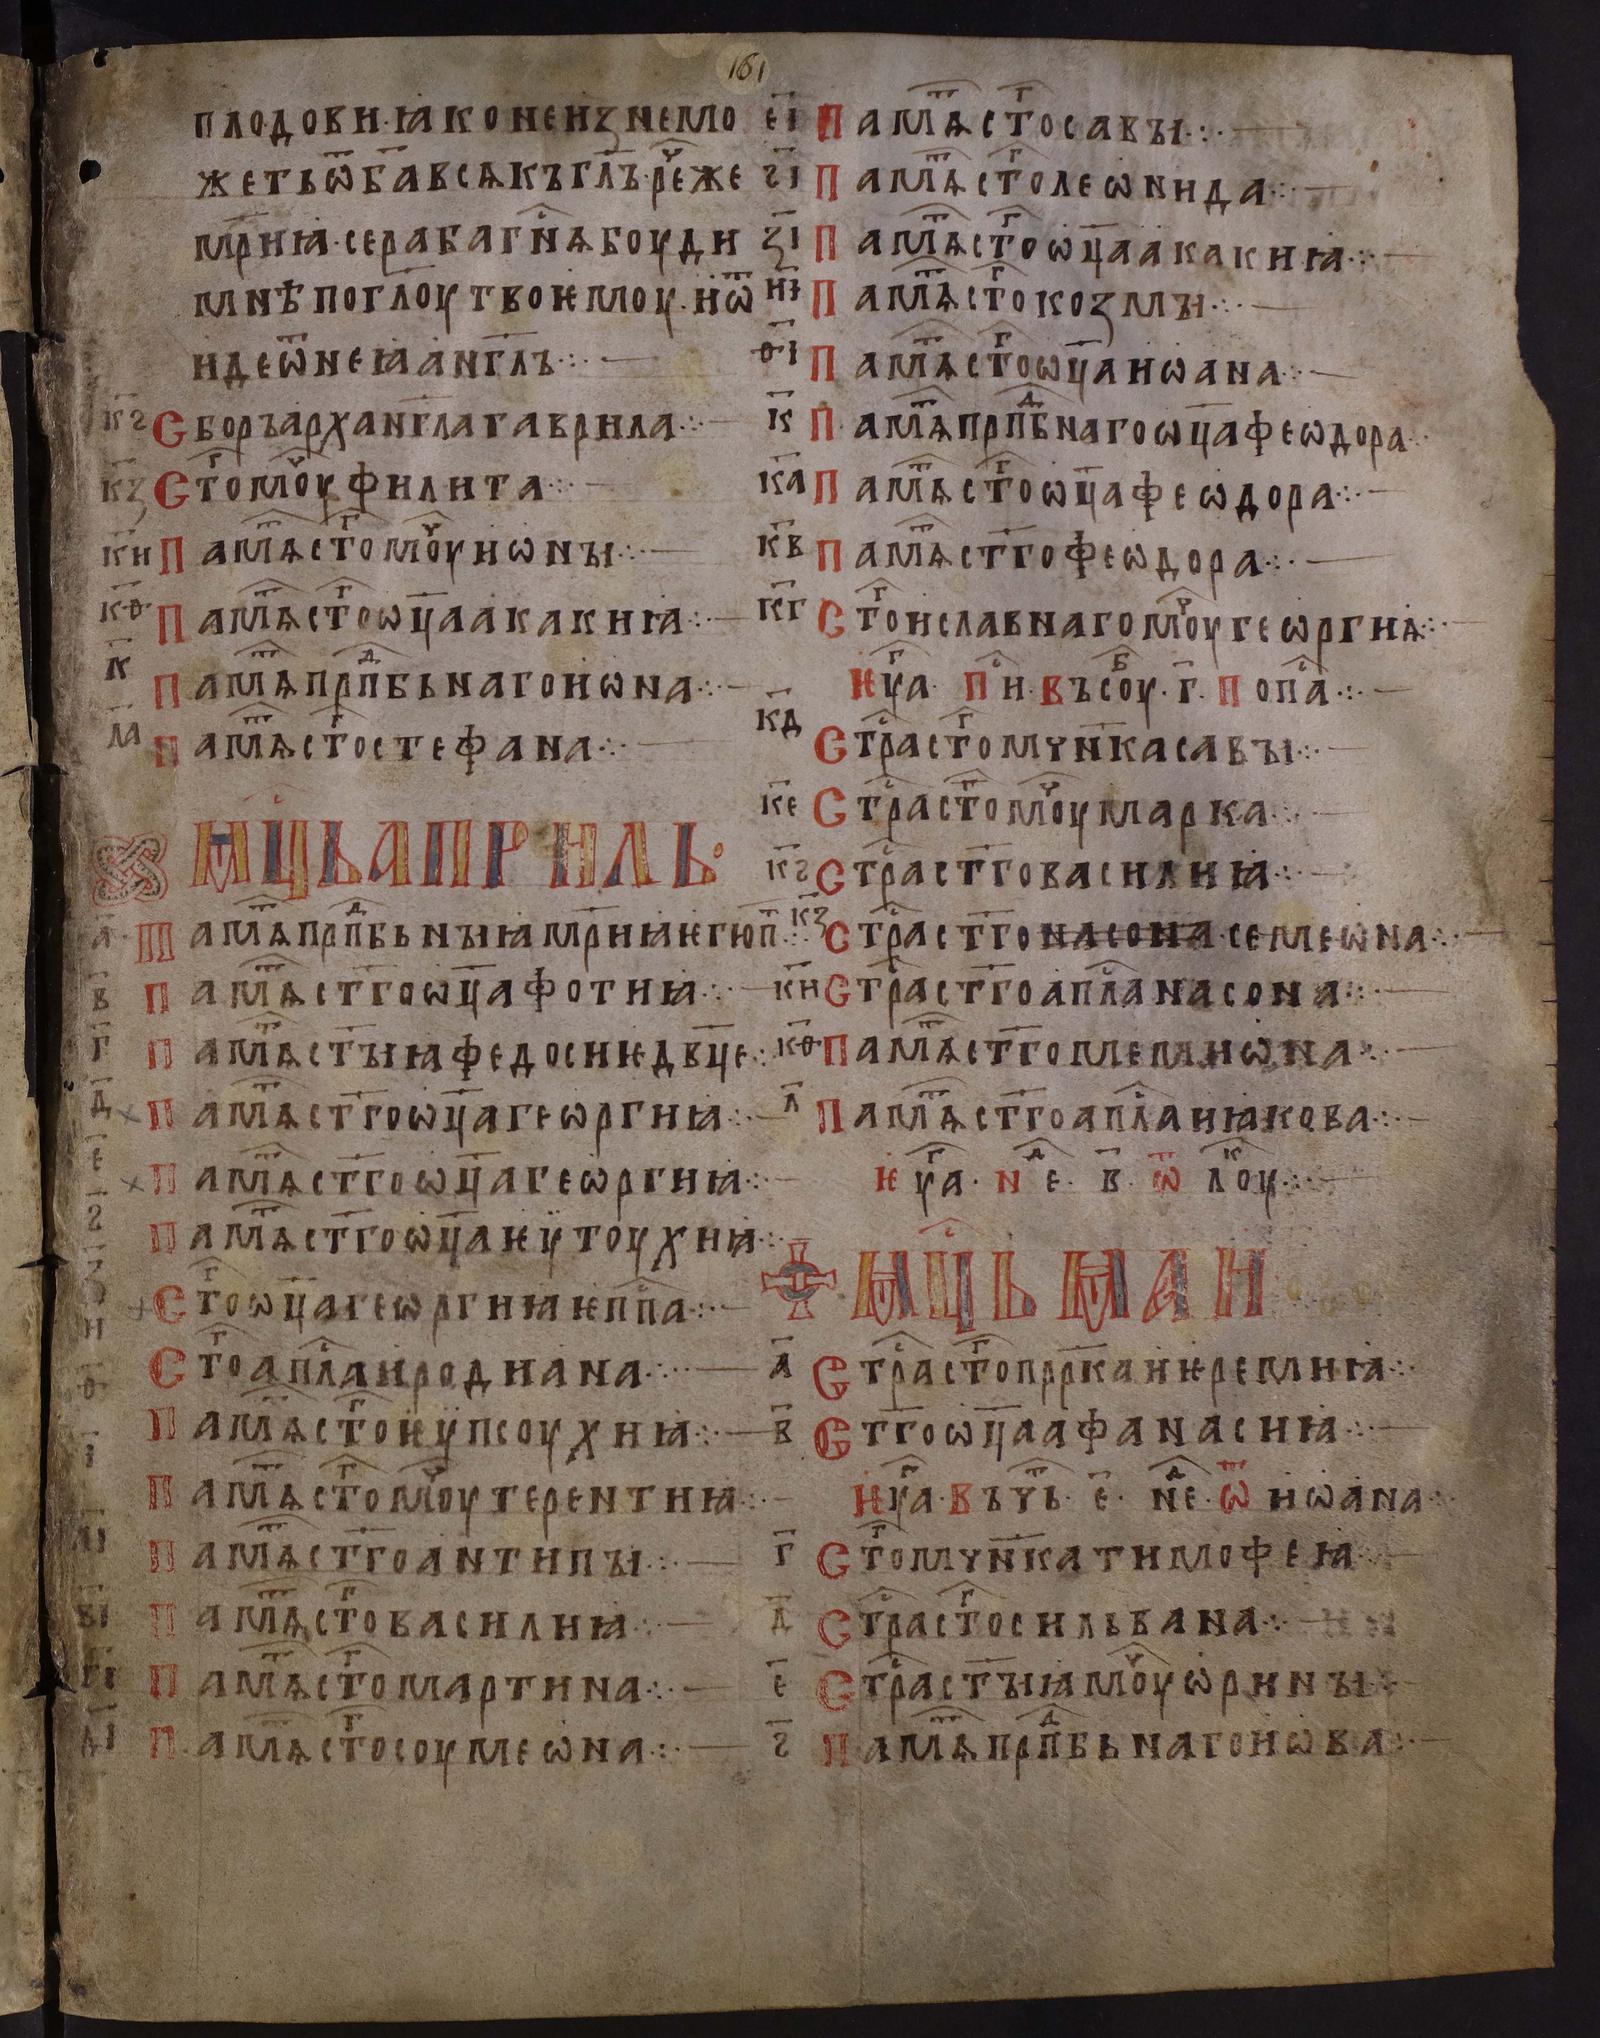 161
плодови·ꙗко не изнемо
жеть ѿ б҃а всѧкъ гл҃ъ· реⷱ҇ же
мр҃иꙗ· се раба гнⷭ҇ѧ боуди
мнѣ по гл҃оу твоѥмоу· и ѿ
иде ѿ неꙗ анг҃лъ·:·
к҃ѕ Сборъ арханг҃ла гаврила·:·
к҃з Стⷢ҇о моуⷱ҇ филита·:·
к҃и Памѧⷮ стⷢ҇о моуⷱ҇ иѡны·:·
к҃ѳ Памѧⷮ стⷢ҇о ѡц҃а акакиꙗ·:·
л҃ Памѧⷮ прпⷣбьнаго иѡна·:·
л҃а Памѧⷮ стⷢ҇о стефана·:·
Мцⷭ҇ь априль·
а҃ Памѧⷮ прпⷣбьныꙗ мр҃иꙗ ѥгюп҃·:·
в҃ Памѧⷮ ст҃го ѡц҃а фотиꙗ·:·
г҃ Памѧⷮ ст҃ыꙗ федосиѥ двц҃е·:·
д҃ Памѧⷮ ст҃го ѡц҃а геѡргиꙗ·:·
е҃ Памѧⷮ ст҃го ѡц҃а геѡргиꙗ·:·
ѕ҃ Памѧⷮ ст҃го ѡц҃а ѥутоухиꙗ·:·
з҃ Стⷢ҇о ѡц҃а геѡргиꙗ ѥпⷭ҇па·:·
и҃ Стⷢ҇о апⷭ҇ла иродиана·:·
ѳ҃ Памѧⷮ стⷢ҇о ѥупсоухиꙗ·:·
і҃ Памѧⷮ стⷢ҇о моуⷱ҇ терентиꙗ·:·
а҃і Памѧⷮ ст҃го антипы·:·
в҃і Памѧⷮ стⷢ҇о василиꙗ·:·
г҃і Памѧⷮ стⷢ҇о мартина·:·
д҃і Памѧⷮ стⷢ҇о соумеѡна·:·
е҃і Памѧⷮ стⷢ҇о савы·:·
ѕ҃і Памѧⷮ стⷢ҇о леѡнида·:·
з҃і Памѧⷮ стⷢ҇о ѡц҃а акакиꙗ·:·
и҃і Памѧⷮ стⷢ҇о козмы·:·
ѳ҃і Памѧⷮ стⷢ҇о ѡц҃а иѡана·:·
к҃ Памѧⷮ прпⷣбнаго ѡц҃а феѡдора·
к҃а Памѧⷮ стⷢ҇о ѡц҃а феѡдора·:·
к҃в Памѧⷮ ст҃го феѡдора·:·
к҃г Стⷢ҇о и славнаго моуⷱ҇ геѡргиѧ·:·
Ѥуⷢ҇а· пⷭ҇и· въ соуⷠ· г҃· по паⷭ҇·:·
к҃д Стрⷭ҇а стⷢ҇о мчн҃ка савы·:·
к҃е Стрⷭ҇а стⷢ҇о моуⷱ҇ марка·:·
к҃ѕ Стрⷭ҇а ст҃го василиꙗ·:·
к҃з Стрⷭ҇а ст҃го насона семеѡна·:·
к҃и Стрⷭ҇а ст҃го апⷭ҇ла насона·:·
к҃ѳ Памѧⷮ ст҃го мемнѡна·:·
л҃ Памѧⷮ ст҃го апⷭ҇ла иꙗкова·:·
ѥуⷢ҇а· неⷣ· в҃· ѿ лоуⷦ·:·
Мцⷭ҇ь маи
а҃ Стрⷭ҇а стⷢ҇о прр҃ка иѥремиꙗ·:·
в҃ Ст҃го ѡц҃а афанасиꙗ·:·
Ѥуⷢ҇а· въ чьⷮ· е҃· неⷣ· ѿ иѡана·:·
г҃ Стⷢ҇о мчн҃ка тимофеꙗ
д҃ Стрⷭ҇а стⷢ҇о сильвана·:·
е҃ Стрⷭ҇а ст҃ыꙗ моуⷱ҇ ѡрины·:·
ѕ҃ Памѧⷮ прпⷣбьнаго иѡва·:·